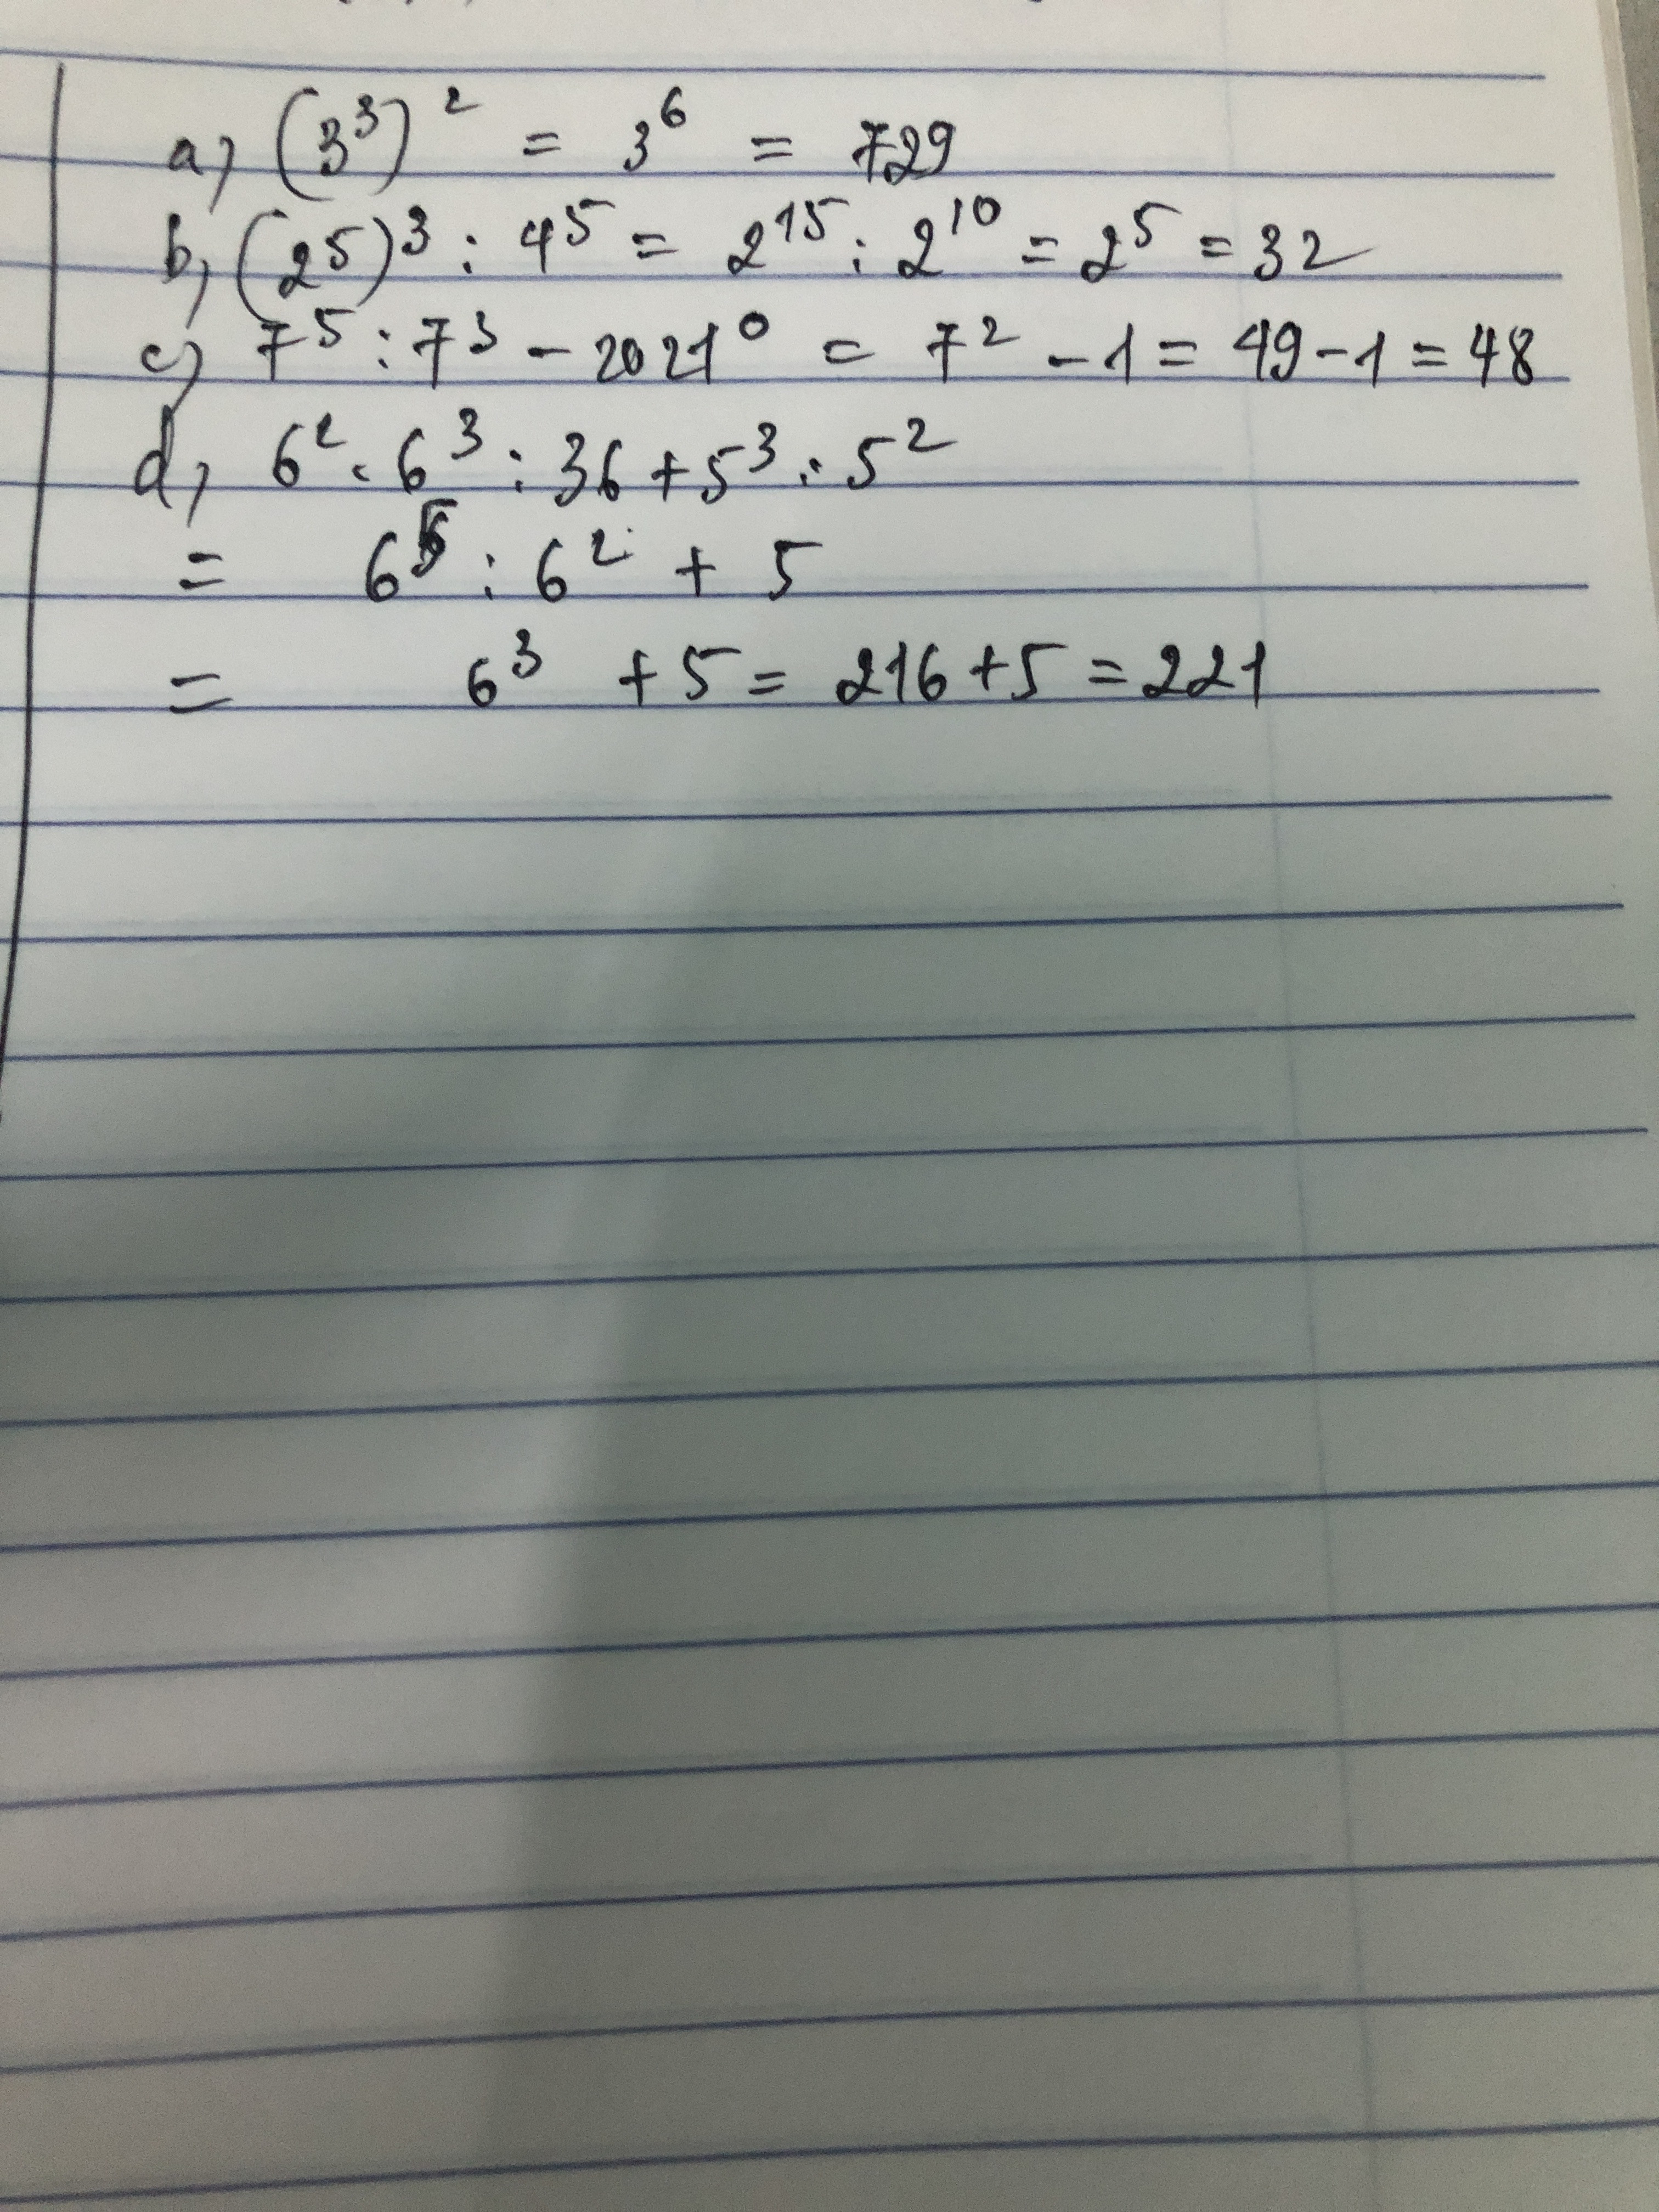 a, (3³)² = 3⁶ = 729
b, (2⁵)³ : 4⁵ = 2¹⁵ : 2¹⁰ = 2⁵ = 32
c, 7⁵ : 7³ - 2021⁰ = 7² - 1 = 49 - 1 = 48
d, 6² . 6³ : 36 + 5³ : 5²
= 6⁵ : 6² + 5
= 6³ + 5 = 216 + 5 = 221